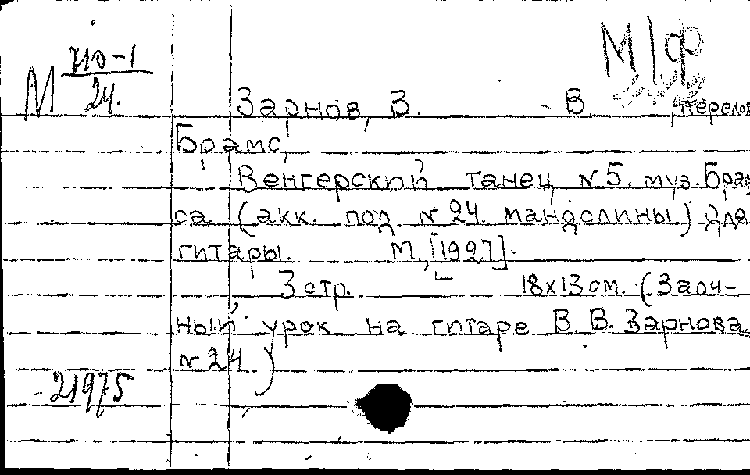 М 710-1
24.
М/ф
Зарнов, В. - В перелож
Брамс,
Венгерский танец N5. муз. Брам
са. (акк. под. N 24. мандолины) для
гитары. М, [1927].
3 стр. 18х13 см. (Заоч-
ный урок на гитаре В. В. Зарнова.
N 24.)
21975